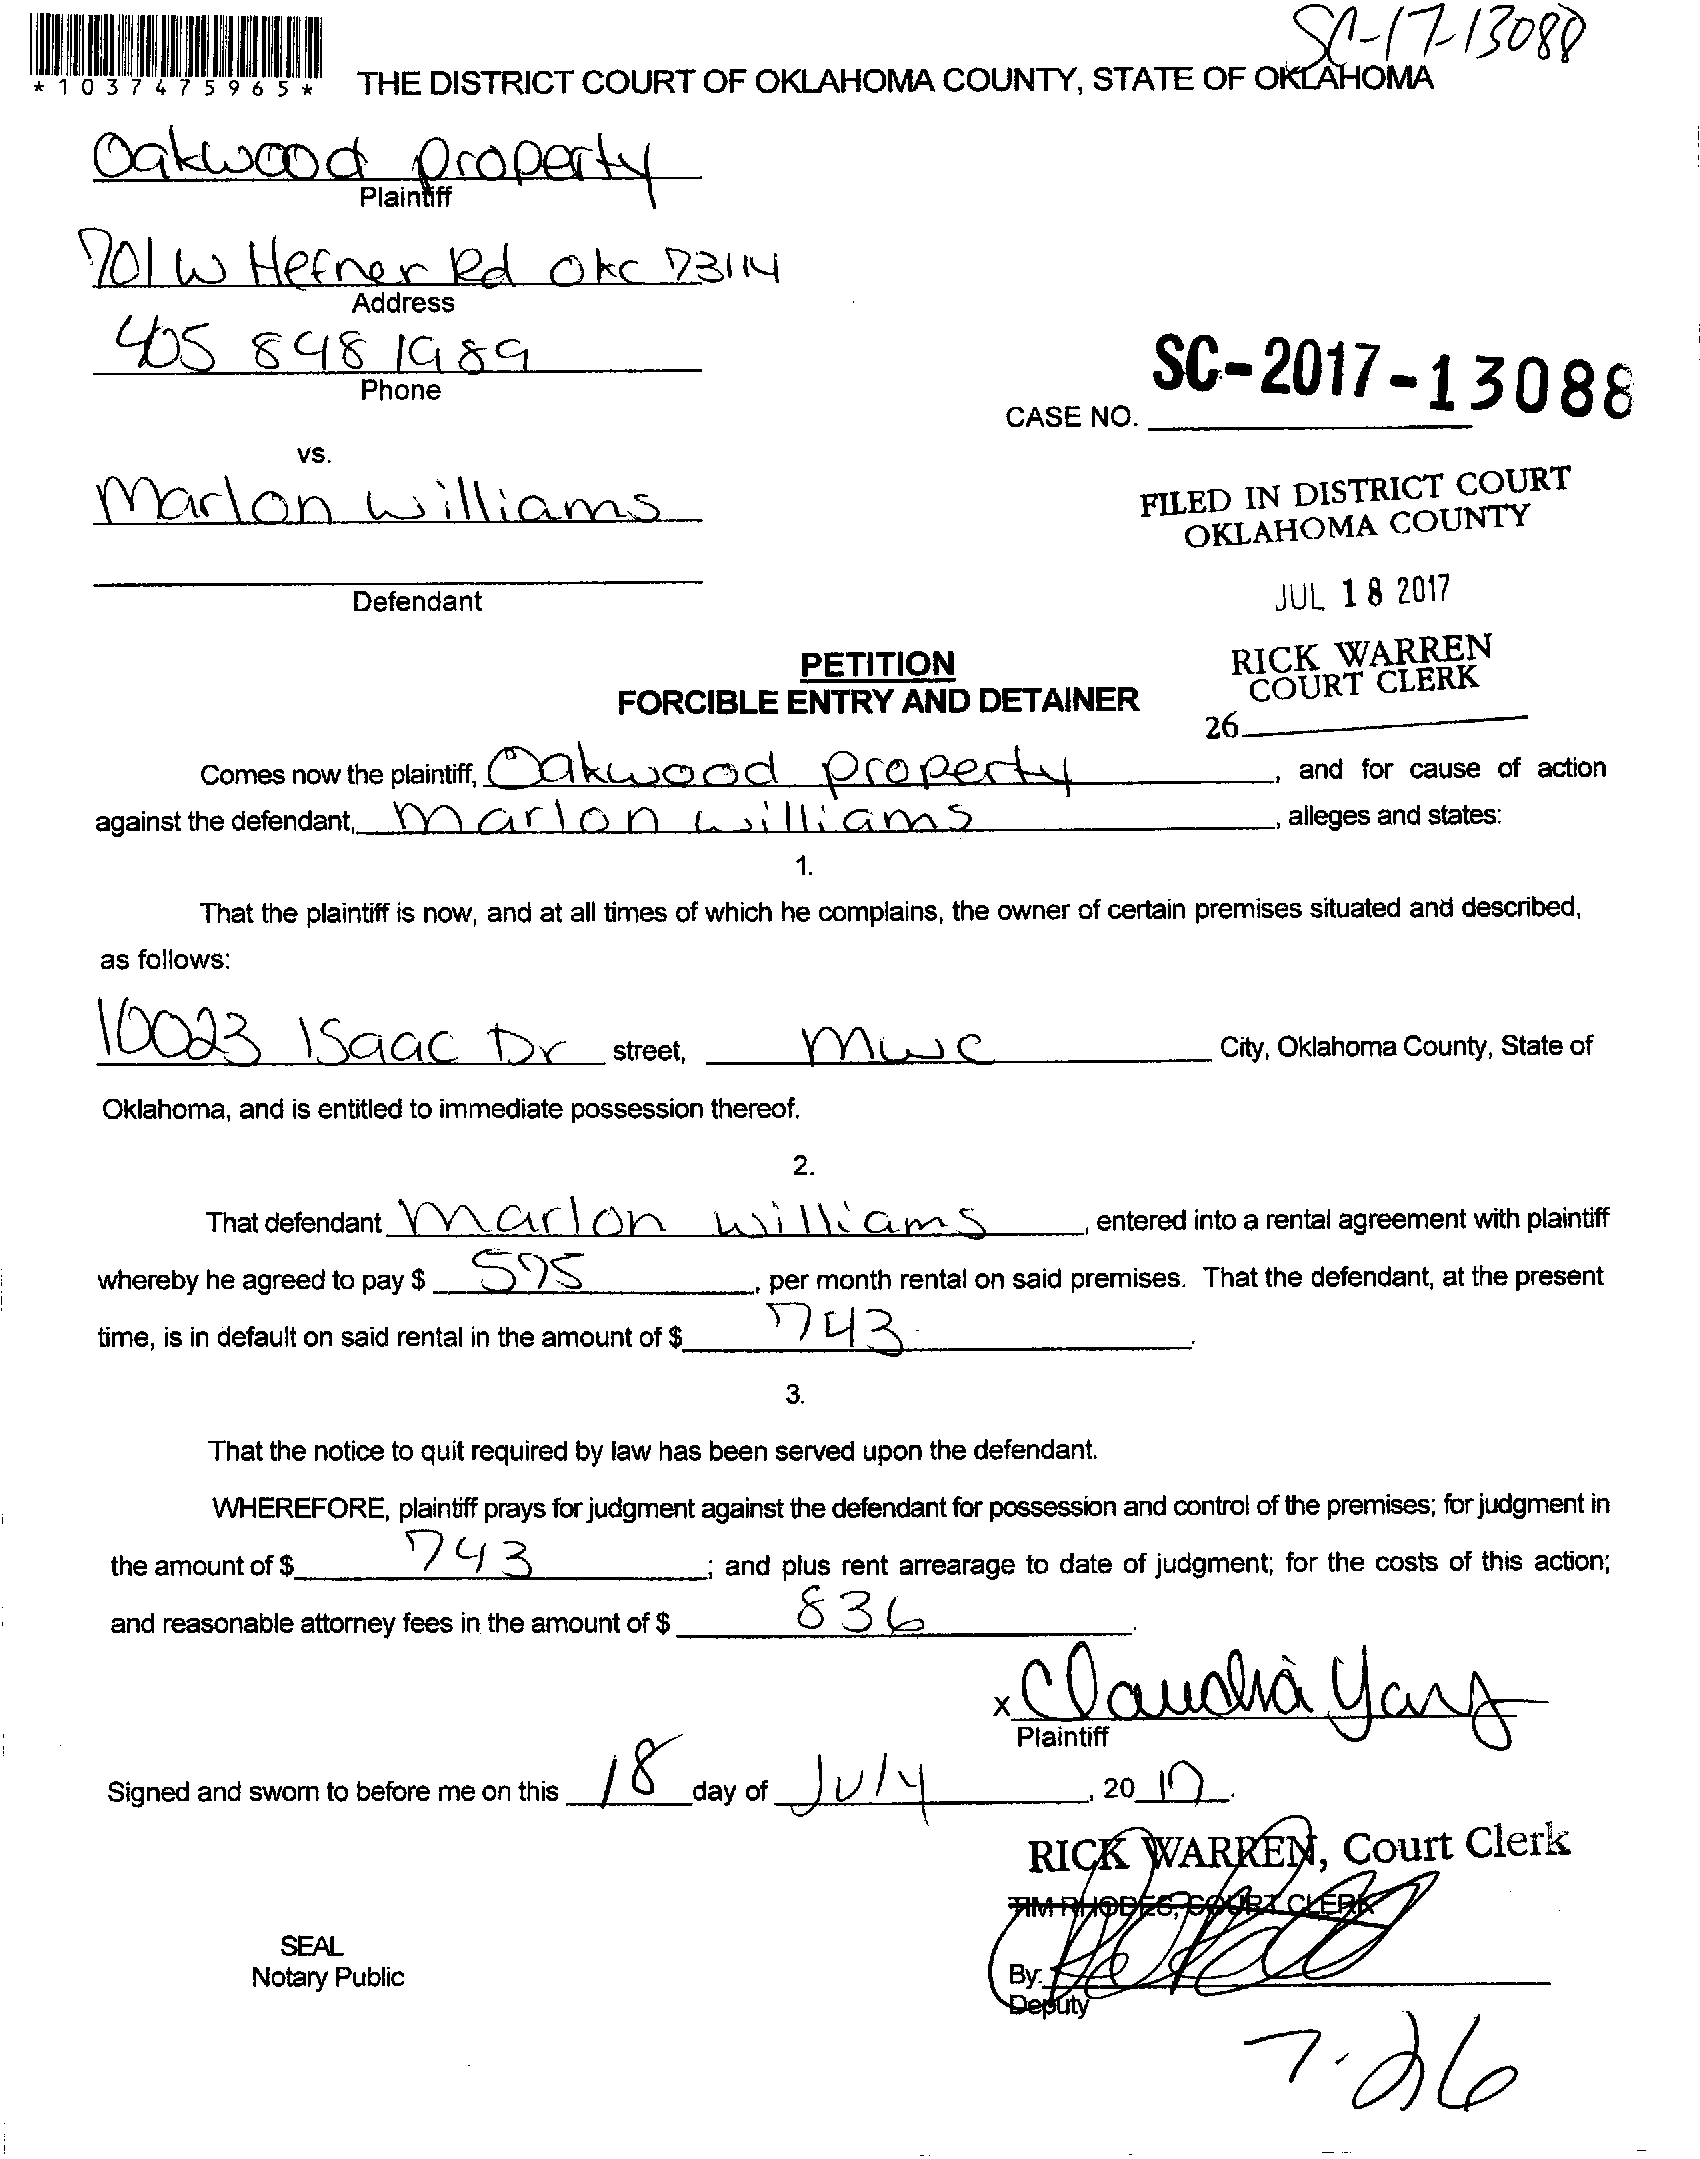 SC-17-13088
*1037475965*
THE DISTRICT COURT OF OKLAHOMA COUNTY, STATE OF OKLAHOMA
Oakwood property
Plaintiff
701 W Hefner Rd OKC 73114
Address
405 848 1989
Phone
SC-2017-13088
CASE NO.
vs.
Marlon Williams
FILED IN DISTRICT COURT
OKLAHOMA COUNTY
Defendant
JUL 18 2017
PETITION
FORCIBLE ENTRY AND DETAINER
RICK WARREN
COURT CLERK
26
Comes now the plaintiff, Oakwood property, and for cause of action
against the defendant, Marlon Williams, alleges and states:
1.
That the plaintiff is now, and at all times of which he complains, the owner of certain premises situated and described,
as follows:
10023 Isaac Dr street, MWC City, Oklahoma County, State of
Oklahoma, and is entitled to immediate possession thereof.
2.
That defendant Marlon Williams, entered into a rental agreement with plaintiff
whereby he agreed to pay $ 595, per month rental on said premises. That the defendant, at the present
time, is in default on said rental in the amount of $ 743.
3.
That the notice to quit required by law has been served upon the defendant.
WHEREFORE, plaintiff prays for judgment against the defendant for possession and control of the premises; for judgment in
the amount of $ 743; and plus rent arrearage to date of judgment; for the costs of this action;
and reasonable attorney fees in the amount of $ 836.
x Claudia
Plaintiff
Signed and sworn to before me on this 18 day of July, 2017.
RICK WARREN, Court Clerk
TIM RHODES, COURT CLERK
SEAL
Notary Public
By:
Deputy
7-26